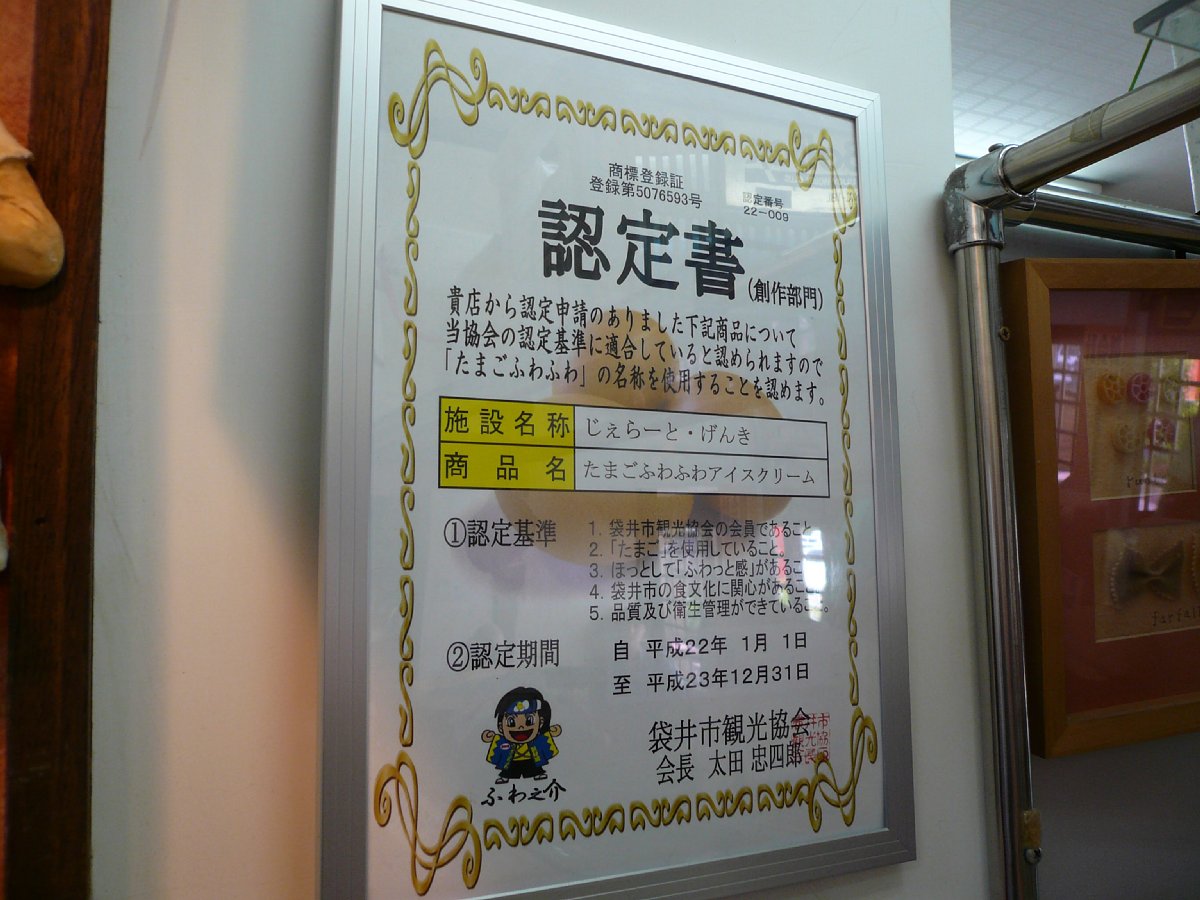 商標登録証
登録第5076593号
認定番号
22-009
認定書
(創作部門)
貴店から認定申請のありました下記商品について
当協会の認定基準に適合していると認められますので
「たまごふわふわ」の名称を使用することを認めます。
施設名称 じぇらーと・げんき
商品名 たまごふわふわアイスクリーム
①認定基準
1. 袋井市観光協会の会員であること。
2. 「たまご」を使用していること。
3. ほっとして「ふわっと感」があること。
4. 袋井市の食文化に関心があること。
5. 品質及び衛生管理ができていること。
②認定期間
自 平成22年 1月 1日
至 平成23年12月31日
ふわ之介
袋井市観光協会
会長 太田 忠四郎